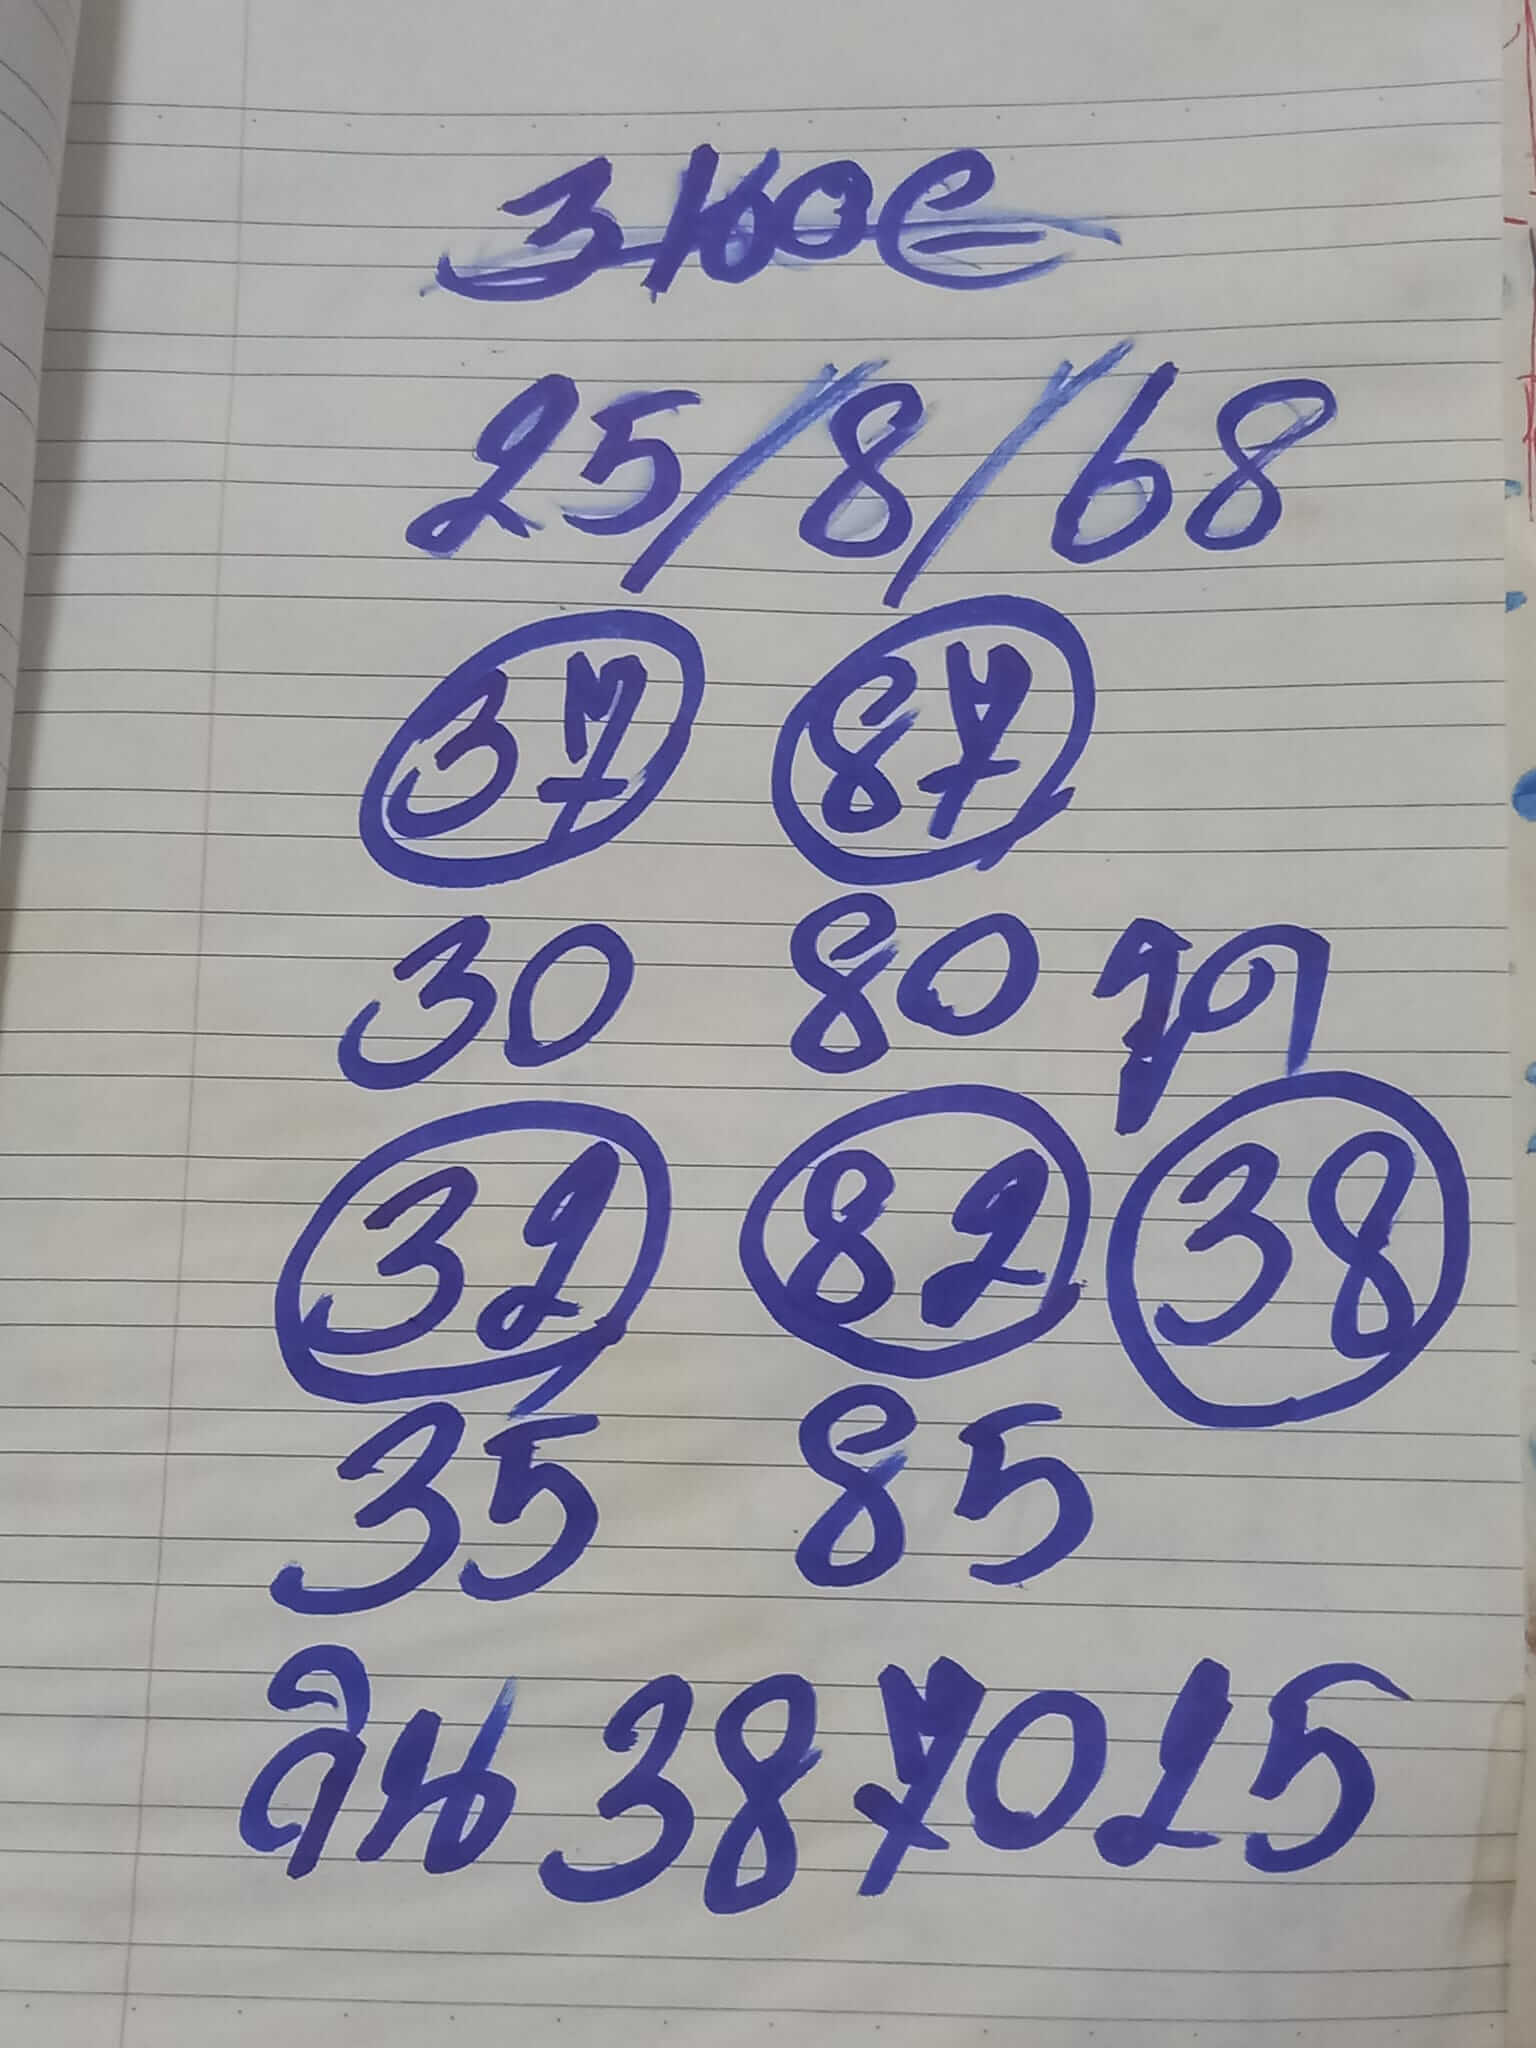 25/8/68
37 87
30 80 จุด
32 82 38
35 85
วิน 387025